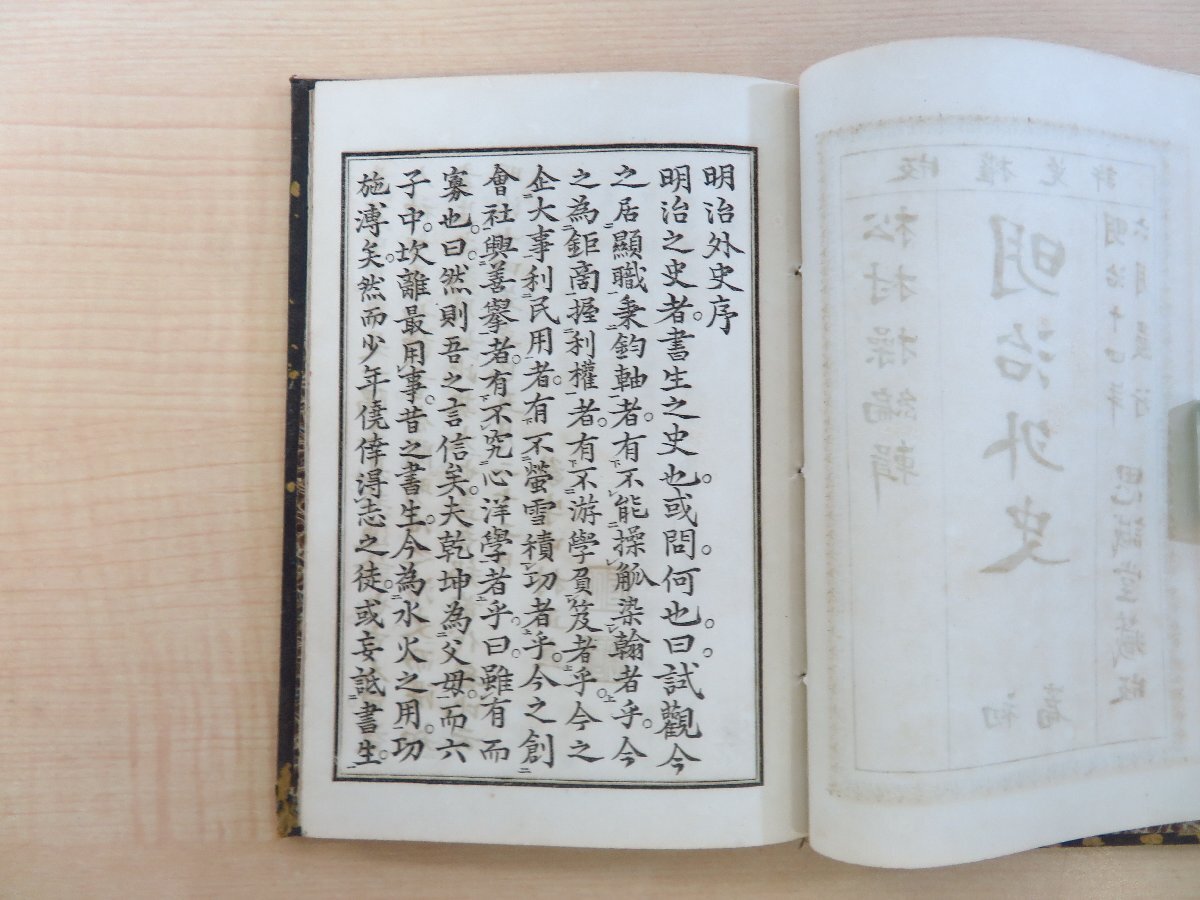 明治外史序
明治之史者。書生之史也。或問。何也。曰。試觀今
之居顯職秉鈞軸者。有不能操觚染翰者乎。今
之為鉅商握利權者。有不游學負笈者乎。今之
企大事利民用者。有不螢雪積功者乎。今之創
會社興善擧者。有不究心洋學者乎。曰。雖有而
寡也。曰。然則吾之言信矣。夫乾坤為父母。而六
子中。坎離最用事。昔之書生。今為水火之用。功
施溥矣。然而少年僥倖得志之徒。或妄詆書生。
版權免許
明治十四年
六月發行
思誠堂藏版
明治外史
初
松村操編輯